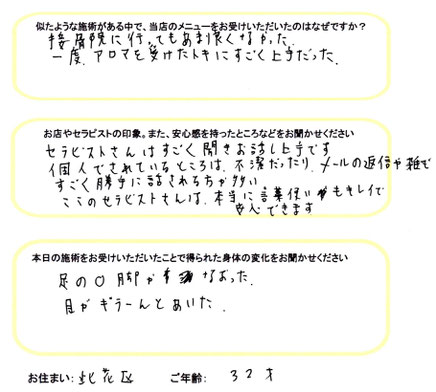 似たような施術がある中で、当店のメニューをお受けいただいたのはなぜですか？
接骨院に行ってもあまり良くなかった.
一度.アロマを受けたトキにすごく上手だった.
お店やセラピストの印象。また、安心感を持ったところなどをお聞かせください
セラピストさんはすごく聞きお話し上手です
個人でされているところは、不潔だったり、メールの返信や雑で
すごく勝手に話される方が多い
ここのセラピストさんは、本当に言葉使いもキレイで
安心できます
本日の施術をお受けいただいたことで得られた身体の変化をお聞かせください
足の○脚がなおった.
目がギラーんとあいた.
お住まい：此花区 ご年齢：32才